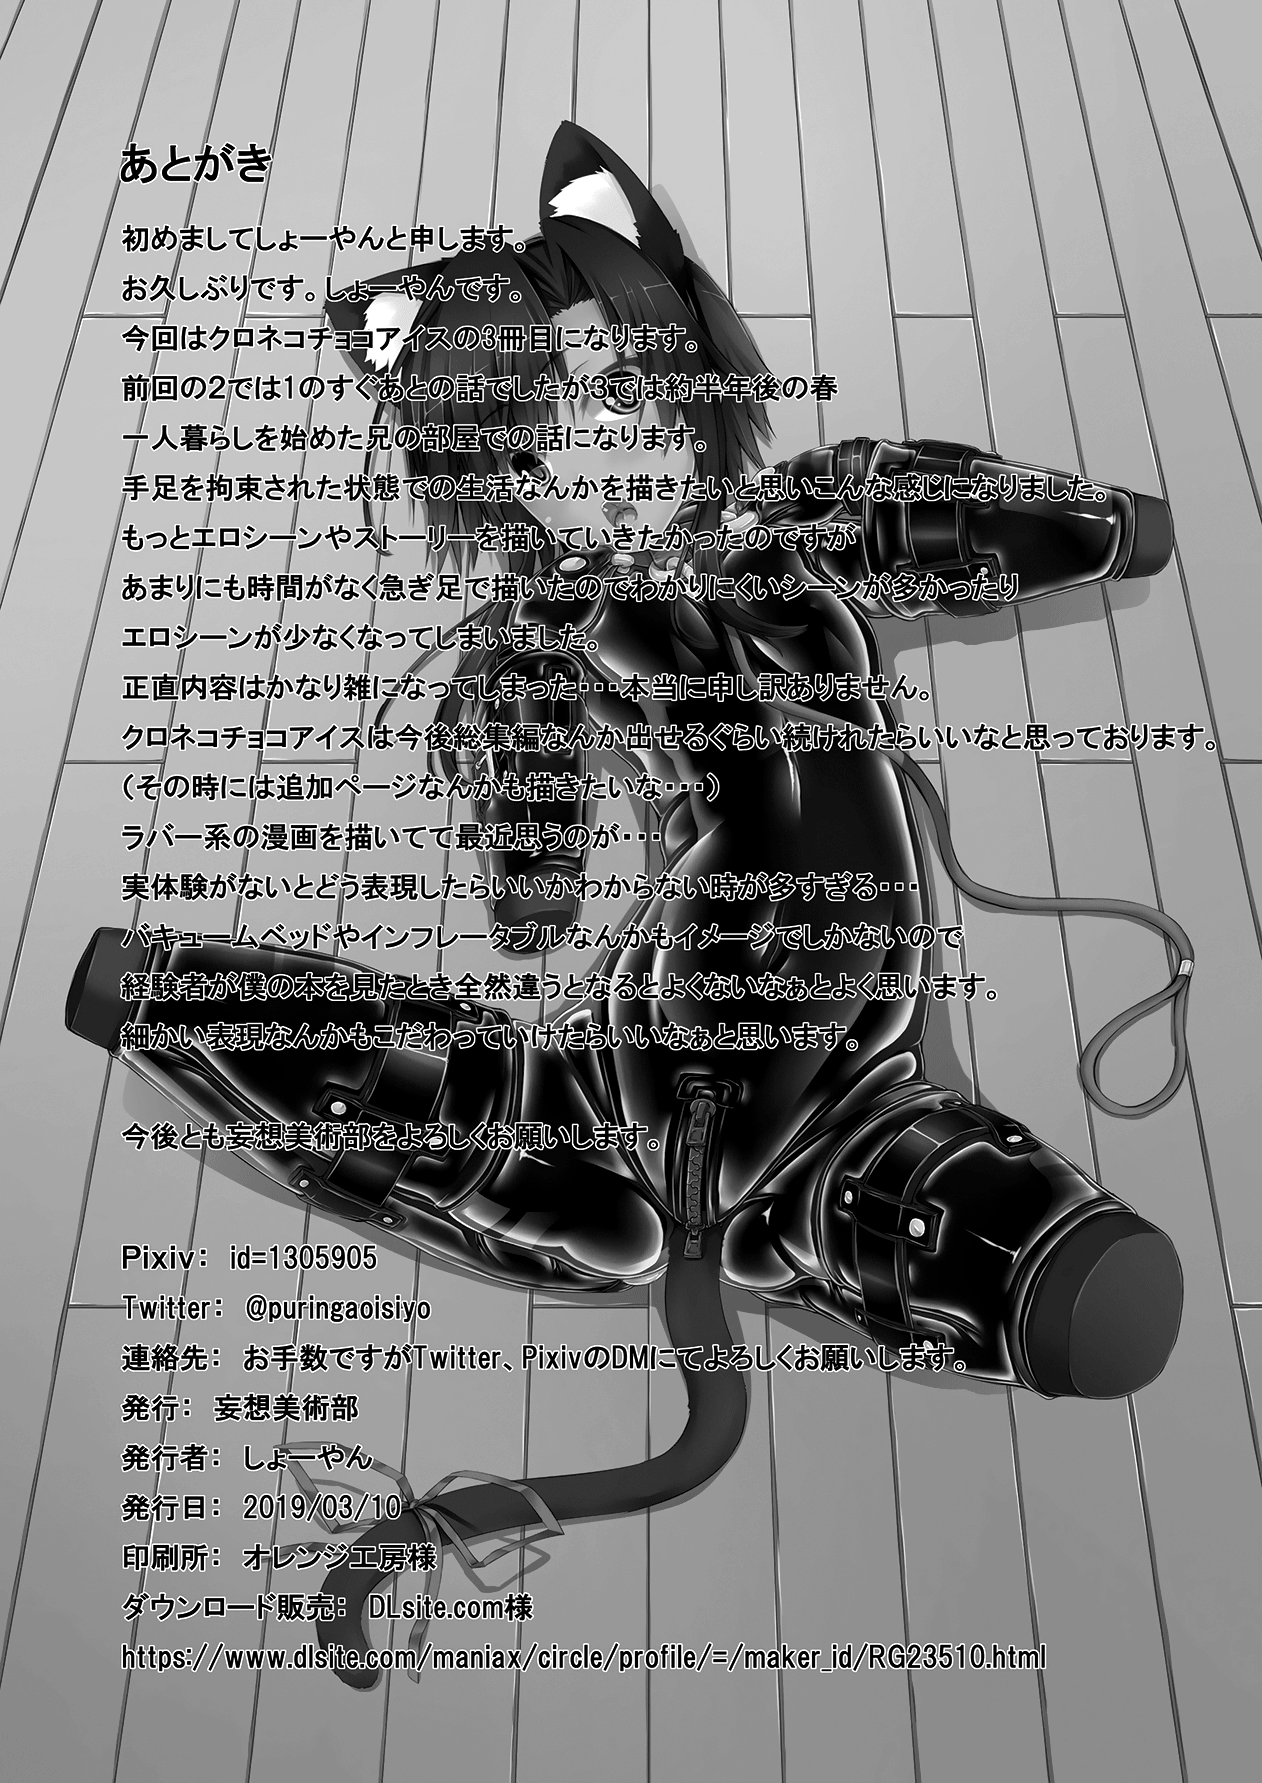 あとがき
初めましてしょーやんと申します。
お久しぶりです。しょーやんです。
今回はクロネコチョコアイスの3冊目になります。
前回の２では1のすぐあとの話でしたが３では約半年後の春
一人暮らしを始めた兄の部屋での話になります。
手足を拘束された状態での生活なんかを描きたいと思いこんな感じになりました。
もっとエロシーンやストーリーを描いていきたかったのですが
あまりにも時間がなく急ぎ足で描いたのでわかりにくいシーンが多かったり
エロシーンが少なくなってしまいました。
正直内容はかなり雑になってしまった・・・本当に申し訳ありません。
クロネコチョコアイスは今後総集編なんか出せるぐらい続けれたらいいなと思っております。
（その時には追加ページなんかも描きたいな・・・）
ラバー系の漫画を描いてて最近思うのが・・・
実体験がないとどう表現したらいいかわからない時が多すぎる・・・
バキュームベッドやインフレータブルなんかもイメージでしかないので
経験者が僕の本を見たとき全然違うとなるとよくないなぁとよく思います。
細かい表現なんかもこだわっていけたらいいなぁと思います。
今後とも妄想美術部をよろしくお願いします。
Pixiv： id=1305905
Twitter： @puringaoisiyo
連絡先： お手数ですがTwitter、PixivのDMにてよろしくお願いします。
発行： 妄想美術部
発行者： しょーやん
発行日： 2019/03/10
印刷所： オレンジ工房様
ダウンロード販売： DLsite.com様
https://www.dlsite.com/maniax/circle/profile/=/maker_id/RG23510.html